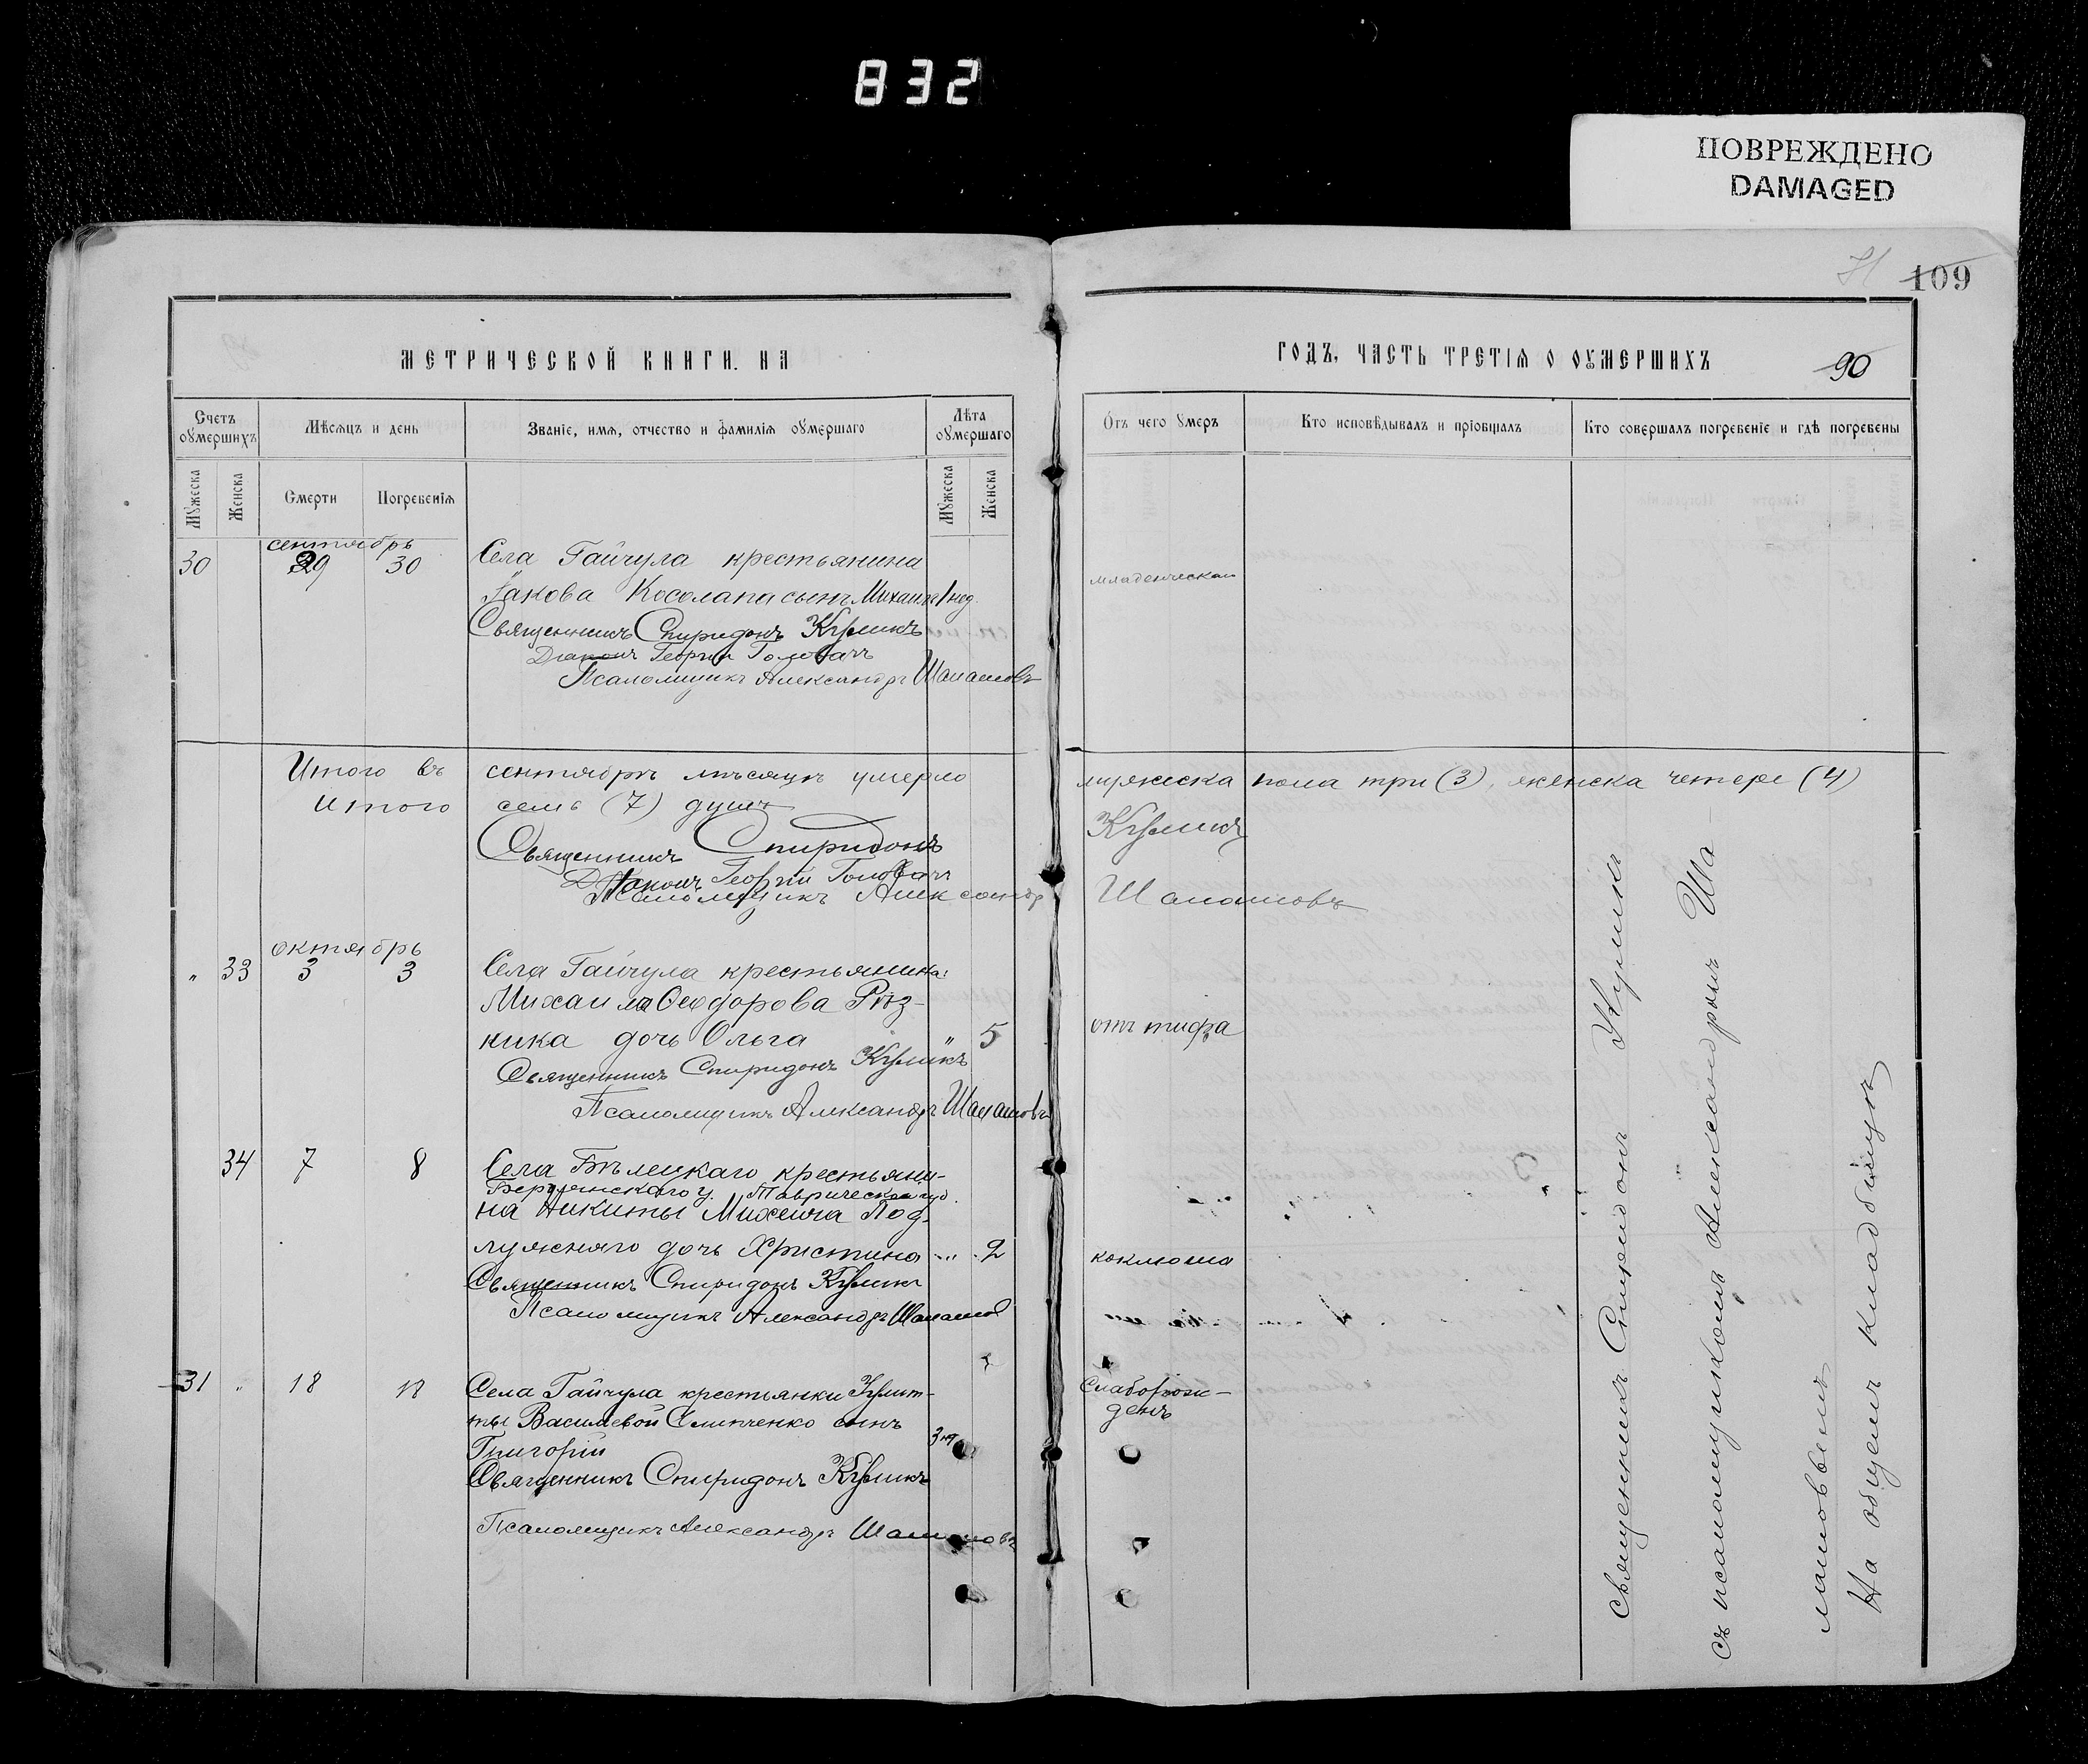 832
ПОВРЕЖДЕНО
DAMAGED
109
МЕТРИЧЕСКОЙ КНИГИ НА
ГОДЪ, ЧАСТЬ ТРЕТІѦ О ОУМЕРШИХЪ
90
Счетъ оумершихъ
Мѣсѧцъ и день
Званіе, имѧ, отчество и фамиліѧ оумершаго
Лѣта оумершаго
Отъ чего умеръ
Кто исповѣдывалъ и пріобщалъ
Кто совершалъ погребеніе и гдѣ погребены
Мужеска
Женска
Смерти
Погребеніѧ
Мужеска
Женска
сентябрь
30 29 30 Села Гайчула крестьянина
Іакова Косолапа сынъ Михаилъ 1 нед. младенческая
Священникъ Спиридонъ Куликъ
Діаконъ Георгій Головачъ
Псаломщикъ Александръ Шаламовъ
Итого въ сентябрѣ мѣсяцѣ умерло мужеска пола три (3), женска четере (4)
Итого семь (7) душъ
Священникъ Спиридонъ Куликъ
Діаконъ Георгій Головачъ
Псаломщикъ Александръ Шаламовъ
октябрь
" 33 3 3 Села Гайчула крестьянина
Михаила Ѳеодорова Рѣз-
ника дочь Ольга " 5 отъ тифа
Священникъ Спиридонъ Куликъ
Псаломщикъ Александръ Шаламовъ
34 7 8 Села Бѣлецкаго крестьяни-
Бердянскаго у. Таврической губ.
на Никиты Михеича Под-
лужняго дочь Христина " 2 коклюша
Священникъ Спиридонъ Куликъ
Псаломщикъ Александръ Шаламов
31 " 18 Села Гайчула крестьянки
Васильевой Слипченко сынъ
Григорій 3 Слаборож-
денъ
Священникъ Спиридонъ Куликъ
Псаломщикъ Александръ Шаламовъ
Священникъ Спиридонъ Куликъ
съ псаломщикомъ Александромъ Ша-
ламовымъ
На общемъ кладбищѣ